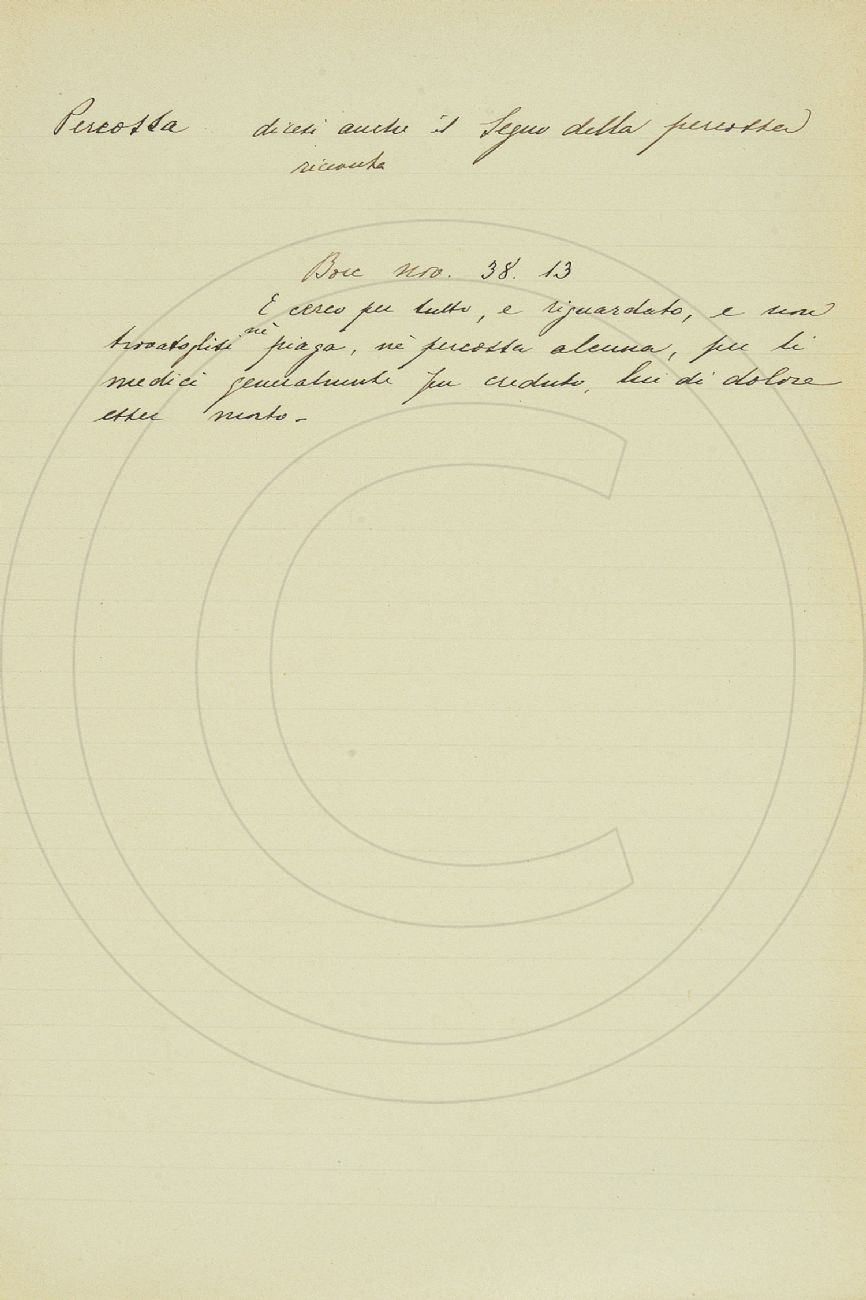 Percossa dicesi anche il Segno della percossa
ricevuta
Bocc nov. 38. 13
E cerco per tutto, e riguardato, e non
trovatoglisi nè piaga, nè percossa alcuna, per li
medici generalmente fu creduto, lui di dolore
esser morto.